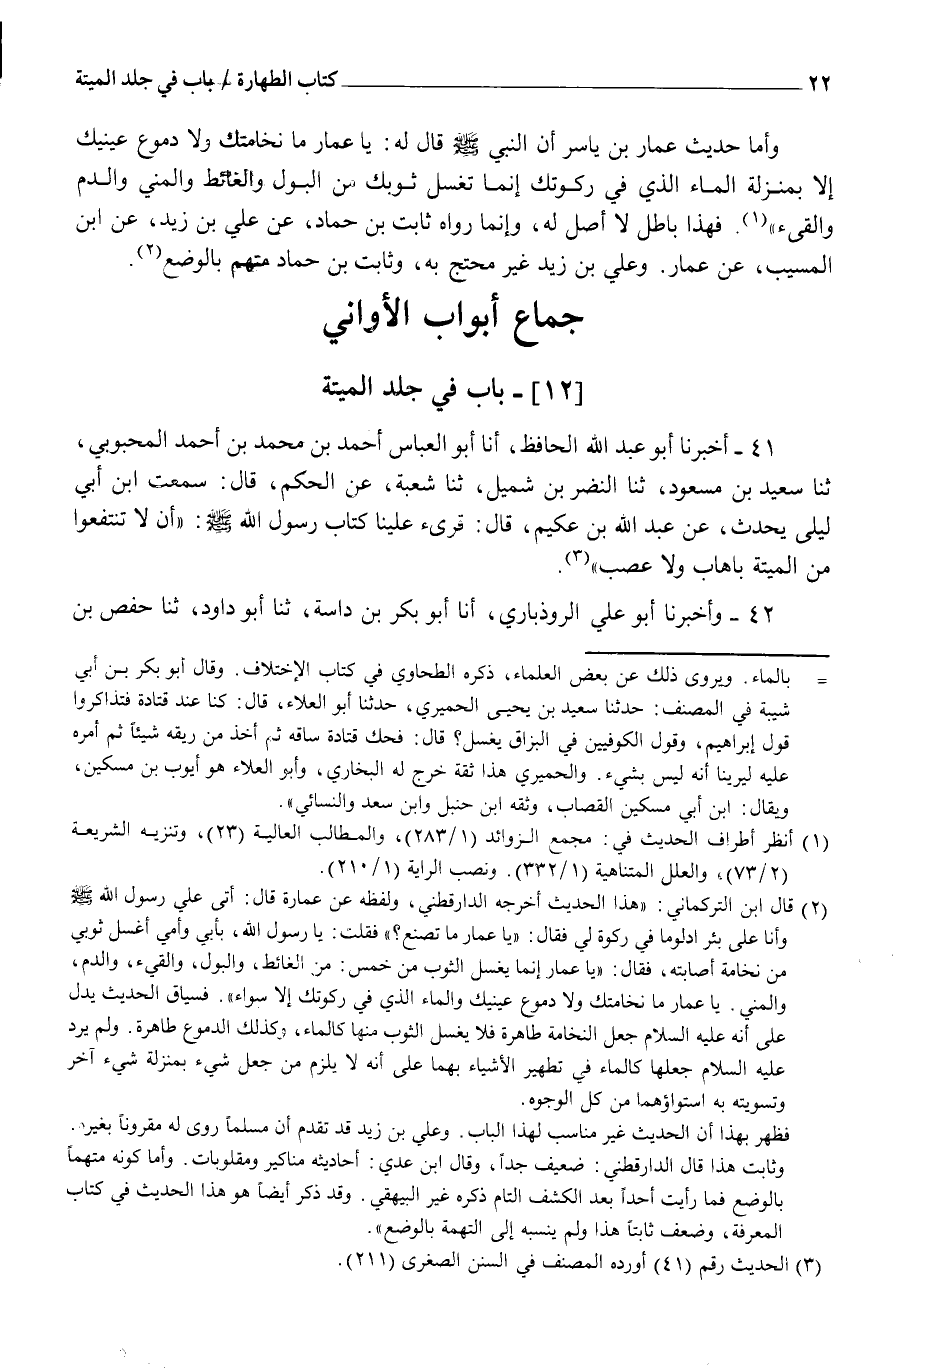 ٢٢ ــــــ كتاب الطهارة / باب في جلد الميتة
وأما حديث عمار بن ياسر أن النبي ﷺ قال له: يا عمار ما نخامتك ولا دموع عينيك
إلا بمنزلة الماء الذي في ركوتك إنما تغسل ثوبك من البول والغائط والمني والدم
والقىء»(١). فهذا باطل لا أصل له، وإنما رواه ثابت بن حماد، عن علي بن زيد، عن ابن
المسيب، عن عمار. وعلي بن زيد غير محتج به، وثابت بن حماد متهم بالوضع(٢).
جماع أبواب الأواني
[١٢] ـ باب في جلد الميتة
٤١ ـ أخبرنا أبو عبد الله الحافظ، أنا أبو العباس أحمد بن محمد بن أحمد المحبوبي،
ثنا سعيد بن مسعود، ثنا النضر بن شميل، ثنا شعبة، عن الحكم، قال: سمعت ابن أبي
ليلى يحدث، عن عبد الله بن عكيم، قال: قرىء علينا كتاب رسول الله ﷺ: «أن لا تنتفعوا
من الميتة باهاب ولا عصب»(٣).
٤٢ ـ وأخبرنا أبو علي الروذباري، أنا أبو بكر بن داسة، ثنا أبو داود، ثنا حفص بن
= بالماء. ويروى ذلك عن بعض العلماء، ذكره الطحاوي في كتاب الإختلاف. وقال أبو بكر بن أبي
شيبة في المصنف: حدثنا سعيد بن يحيى الحميري، حدثنا أبو العلاء، قال: كنا عند قتادة فتذاكروا
قول إبراهيم، وقول الكوفيين في البزاق يغسل؟ قال: فحك قتادة ساقه ثم أخذ من ريقه شيئاً ثم أمره
عليه ليرينا أنه ليس بشيء. والحميري هذا ثقة خرج له البخاري، وأبو العلاء هو أيوب بن مسكين،
ويقال: ابن أبي مسكين القصاب، وثقه ابن حنبل وابن سعد والنسائي».
(١) أنظر أطراف الحديث في: مجمع الزوائد (٢٨٣/١)، والمطالب العالية (٢٣)، وتنزيه الشريعة
(٧٣/٢)، والعلل المتناهية (٣٣٢/١). ونصب الراية (٢١٠/١).
(٢) قال ابن التركماني: «هذا الحديث أخرجه الدارقطني، ولفظه عن عمارة قال: أتى علي رسول الله ﷺ
وأنا على بئر ادلوما في ركوة لي فقال: «يا عمار ما تصنع؟» فقلت: يا رسول الله، بأبي وأمي أغسل ثوبي
من نخامة أصابته، فقال: «يا عمار إنما يغسل الثوب من خمس: من الغائط، والبول، والقيء، والدم،
والمني. يا عمار ما نخامتك ولا دموع عينيك والماء الذي في ركوتك إلا سواء». فسياق الحديث يدل
على أنه عليه السلام جعل النخامة طاهرة فلا يغسل الثوب منها كالماء، وكذلك الدموع طاهرة. ولم يرد
عليه السلام جعلها كالماء في تطهير الأشياء بهما على أنه لا يلزم من جعل شيء بمنزلة شيء آخر
وتسويته به استواؤهما من كل الوجوه.
فظهر بهذا أن الحديث غير مناسب لهذا الباب. وعلي بن زيد قد تقدم أن مسلماً روى له مقروناً بغيره.
وثابت هذا قال الدارقطني: ضعيف جداً، وقال ابن عدي: أحاديثه مناكير ومقلوبات. وأما كونه متهماً
بالوضع فما رأيت أحداً بعد الكشف التام ذكره غير البيهقي. وقد ذكر أيضاً هو هذا الحديث في كتاب
المعرفة، وضعف ثابتاً هذا ولم ينسبه إلى التهمة بالوضع».
(٣) الحديث رقم (٤١) أورده المصنف في السنن الصغرى (٢١١).